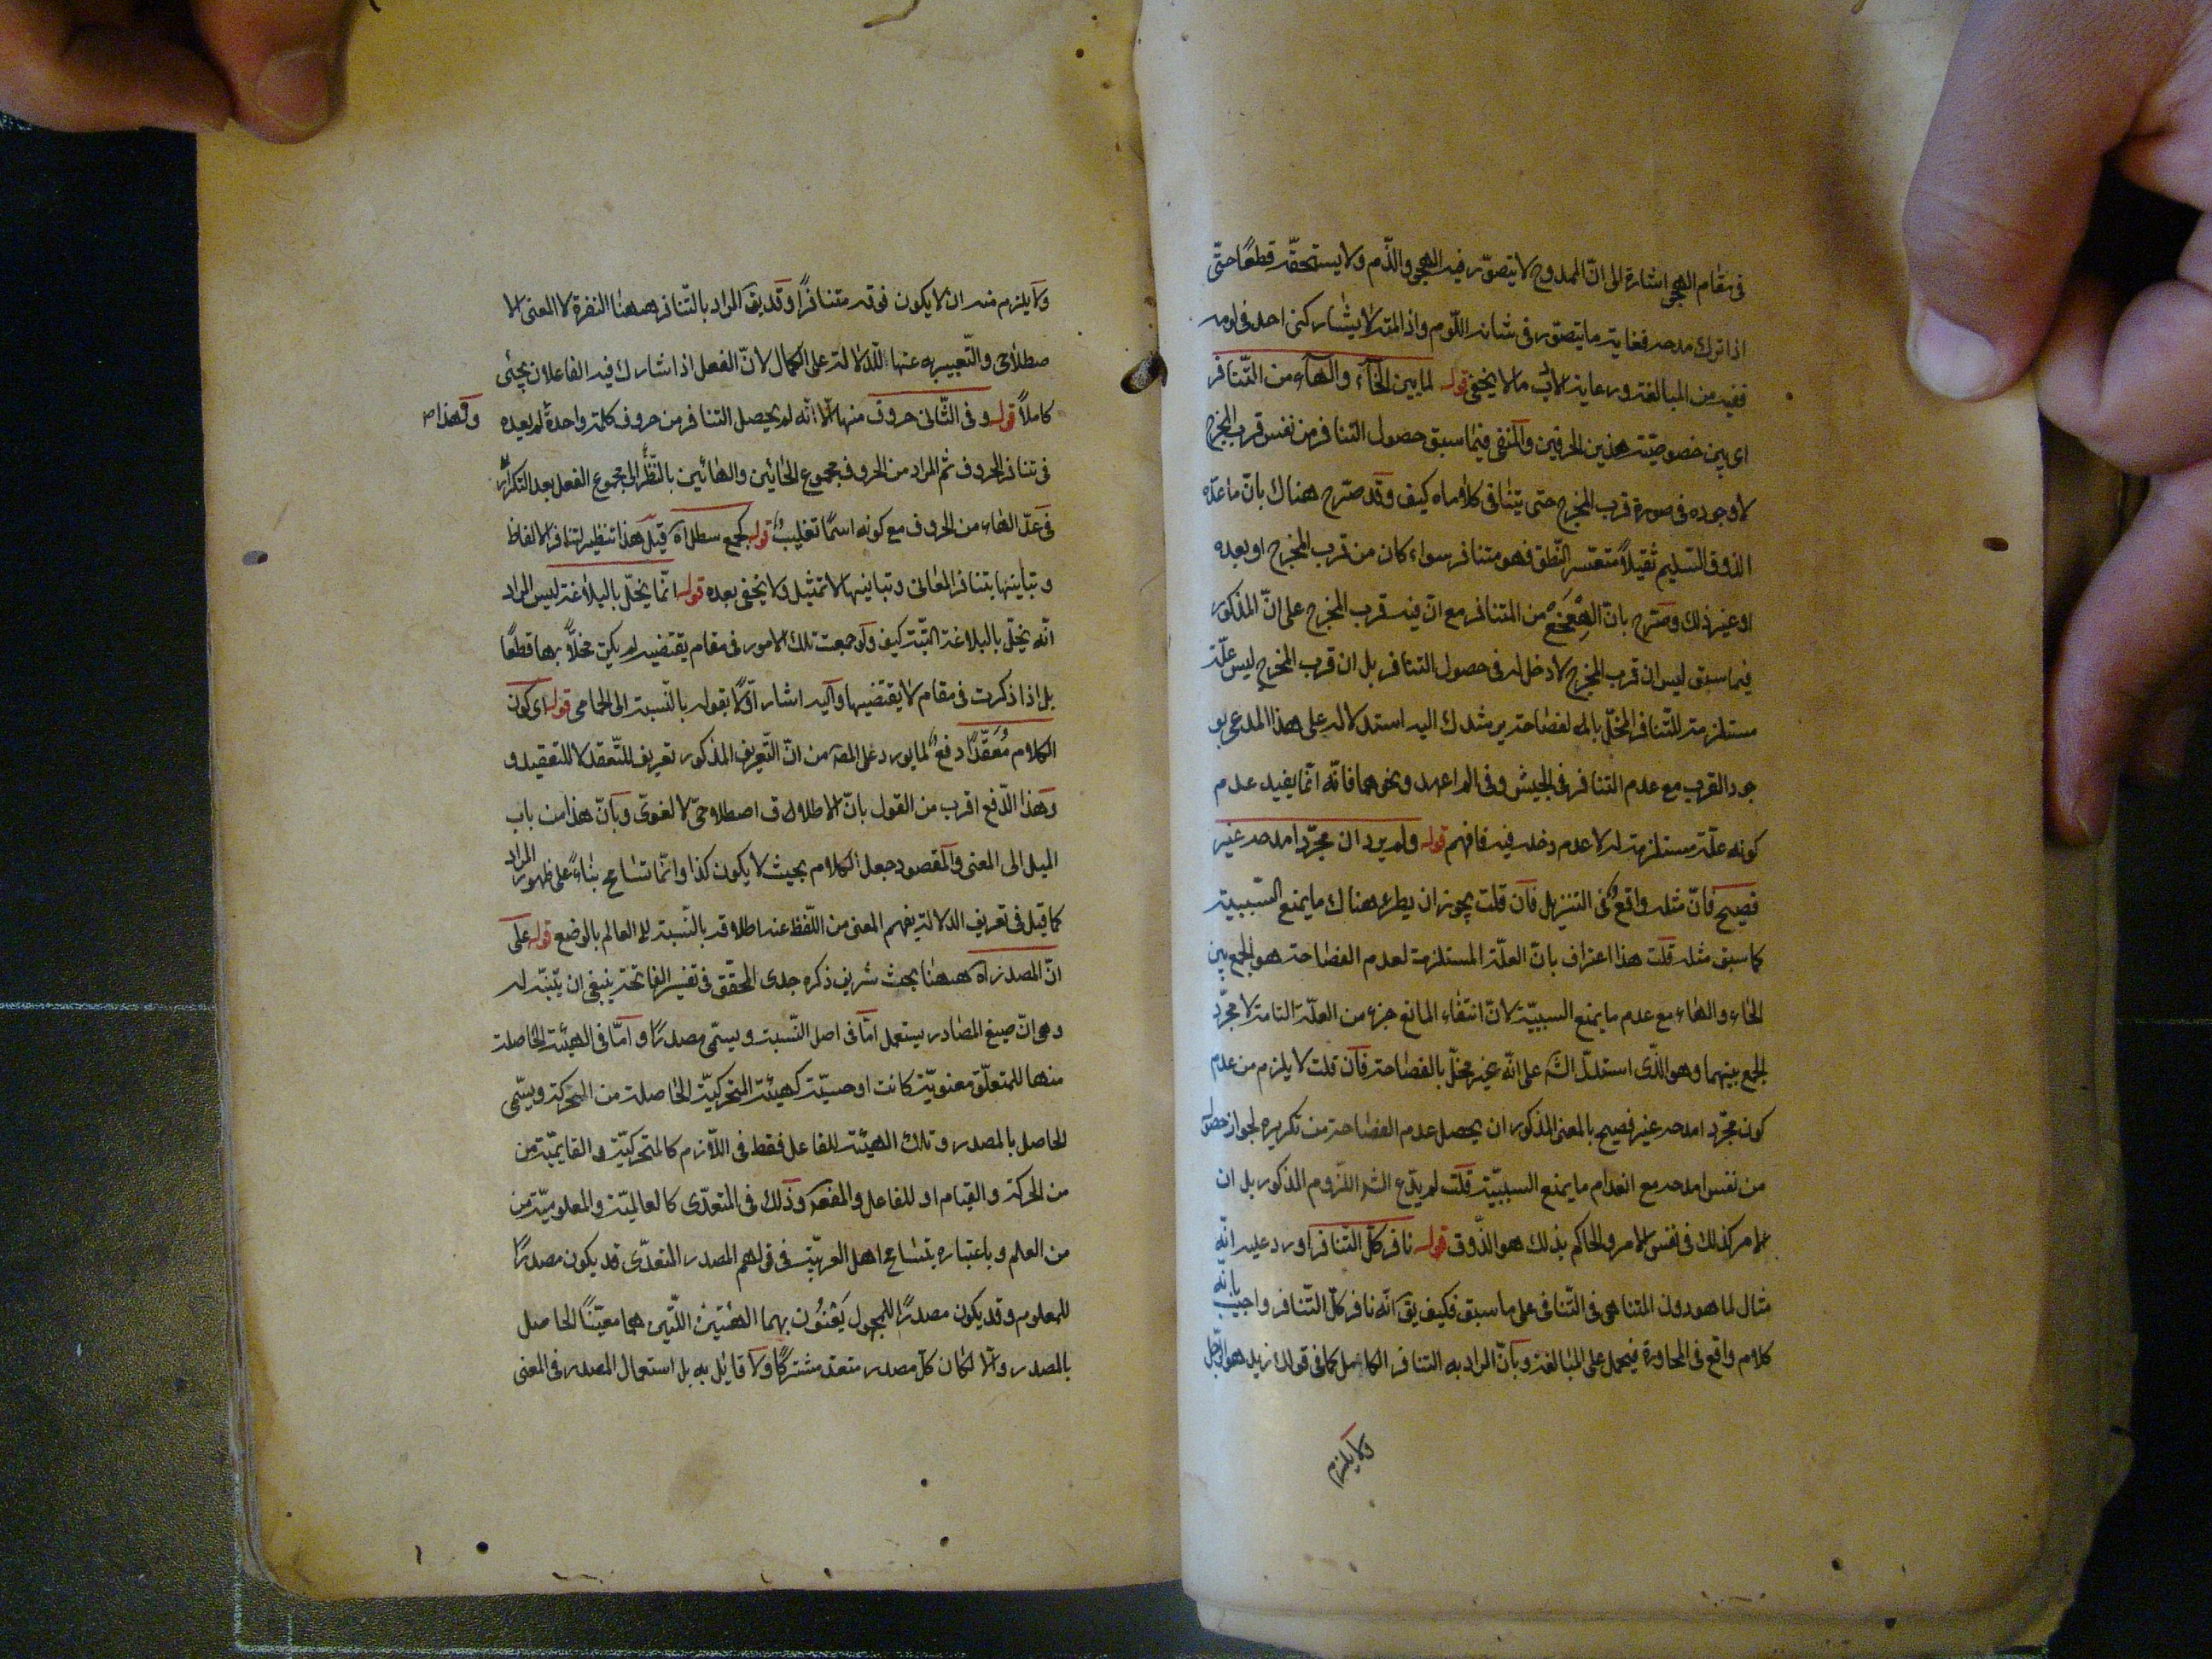 فى مقام الهجو اشارة الى انّ الممدوح لا يتصوّر فيه الهجو والذّم ولا يستحقّه قطعًا حتّى
اذا ترك مدحه فغاية ما يتصوّر فى شانه اللّوم واذا لمته لا يشاركنى احد فى لومه
ففيه من المبالغة ورعاية الادب ما لا يخفى قوله لما بين الحآء والهآء من التّنافر
اى بين خصوصيّته هذين الحرفين والمنفى فيما سبق حصول التنافر من نفس قرب المخرج
لا وجوده فى صورة قرب المخرج حتى يتنافى كلاماه كيف وقد صرّح هناك بانّ ما عدّه
الذوق السّليم ثقيلاً متعسّر النّطق فهو متنافر سواء كان من قرب المخرج او بعده
او غير ذلك وصرّح بانّ الهعخع من المتنافر مع انّ فيه قرب المخرج على انّ المذكور
فيما سبق ليس ان قرب المخرج لا دخل له فى حصول التنافر بل ان قرب المخرج ليس علّة
مستلزمة للتّنافر المخلّ بالفصاحة يرشدك اليه استدلاله على هذا المدعى بو
جود القرب مع عدم التنافر فى الجيش وفى الم اعهد ونحوهما فانّه انّما يفيد عدم
كونه علّة مستلزمة له لا عدم دخله فيه فافهم قوله ولم يرد ان مجرّد امدحه غير
فصيح فانّ مثله واقع فى التنزيل فان قلت يجوز ان يطرء هناك ما يمنع السّببيّة
كما سبق مثله قلت هذا اعتراف بانّ العلّة المستلزمة لعدم الفصاحة هو الجمع بين
الحاء والهاء مع عدم ما يمنع السببيّة لانّ انتفاء المانع جزء من العلّة التامة لا مجرّد
الجمع بينهما وهو الّذى استدلّ الش على انّه غير مخلّ بالفصاحة فان قلت لا يلزم من عدم
كون مجرّد امدحه غير فصيح بالمعنى المذكور ان يحصل عدم الفصاحة من تكريره لجواز حصوله
من نفس امدحه مع انعدام ما يمنع السببيّة قلت لم يدّع الش اللزوم المذكور بل ان
الامر كذلك فى نفس الامر والحاكم بذلك هو الذّوق قوله نافر كلّ التّنافر اورد عليه انّه
مثال لما هو دون المتناهى فى التّنافى على ما سبق فكيف يق انّه نافر كلّ التّنافر واجيب بانّه
كلام واقع فى المحاورة فيحمل على المبالغة وبانّ المراد به التنافر الكامل كما فى قولك زيد هو الرّجل
ولا يلزم
ولا يلزم منه ان لا يكون فوقه متنافرًا وقد يق المراد بالتّنافر ههنا النفرة لا المعنى الا
صطلاحى والتّعبير به عنها للدّلالة على الكمال لانّ الفعل اذا اشارك فيه الفاعلان يجئى
كاملاً قوله وفى الثّانى حروف منها الّا انّه لم يحصل التنافر من حروف كلمة واحدة لم يعده
فى تنافر الحروف ثم المراد من الحروف مجموع الحائين والهائين بالنّظر الى مجموع الفعل بعد التكرار
فى عدّ الهاء من الحروف مع كونه اسمًا تغليب قوله كجمع سطل اه قيل هذا تنظير لتنافر الالفاظ
وتباينها بتنافر المعانى وتباينها لا تمثيل ولا يخفى بعده قوله انّما يخلّ بالبلاغة ليس المراد
انّه يخلّ بالبلاغة البتّة كيف ولو جمعت تلك الامور فى مقام يقتضيه لم يكن مخلًّا بها قطعًا
بل اذا ذكرت فى مقام لا يقتضيها واليه اشار اوّلًا بقوله بالنّسبة الى الحامى قوله اى كون
الكلام مُعَقّدًا دفع لما يورد على المصه من انّ التّعريف المذكور تعريف للتّعقد لا للتعقيد و
وهذا الدّفع اقرب من القول بانّ الاطلاق اصطلاحى لا لغوىّ وبانّ هذا من باب
الميل الى المعنى والمقصود جعل الكلام بحيث لا يكون كذا وانّما تسامح بناءً على ظهور المراد
كما قيل فى تعريف الدلالة بفهم المعنى من اللّفظ عند اطلاقه بالنّسبة الى العالم بالوضع قوله على
انّ المصدر اه ههنا بحث شريف ذكره جدى المحقّق فى تفسير الفاتحة ينبغى ان يتنبّه له
وهى انّ صيغ المصادر يستعمل امّا فى اصل النّسبة ويسمّى مصدرًا وامّا فى الهيئة الحاصلة
منها للمتعلّق معنويّة كانت او حسيّة كهيئة المتحركيّة الحاصلة من الحركة ويسمّى
الحاصل بالمصدر وتلك الهيئة للفاعل فقط فى اللّازم كالمتحركيّة والقايميّة من
من الحركة والقيام او للفاعل والمفعول وذلك فى المتعدّى كالعالميّة والمعلوميّة من
من العلم وباعتباره يتسامح اهل العربيّة فى قولهم المصدر المتعدّى قد يكون مصدرًا
للمعلوم وقد يكون مصدرًا للمجهول يَعْنُون بهما الهيئتين اللّتين هما معيّنًا الحاصل
بالمصدر والّا لكان كلّ مصدر متعد مشتركًا ولا قايل به بل استعمال المصدر فى المعنى